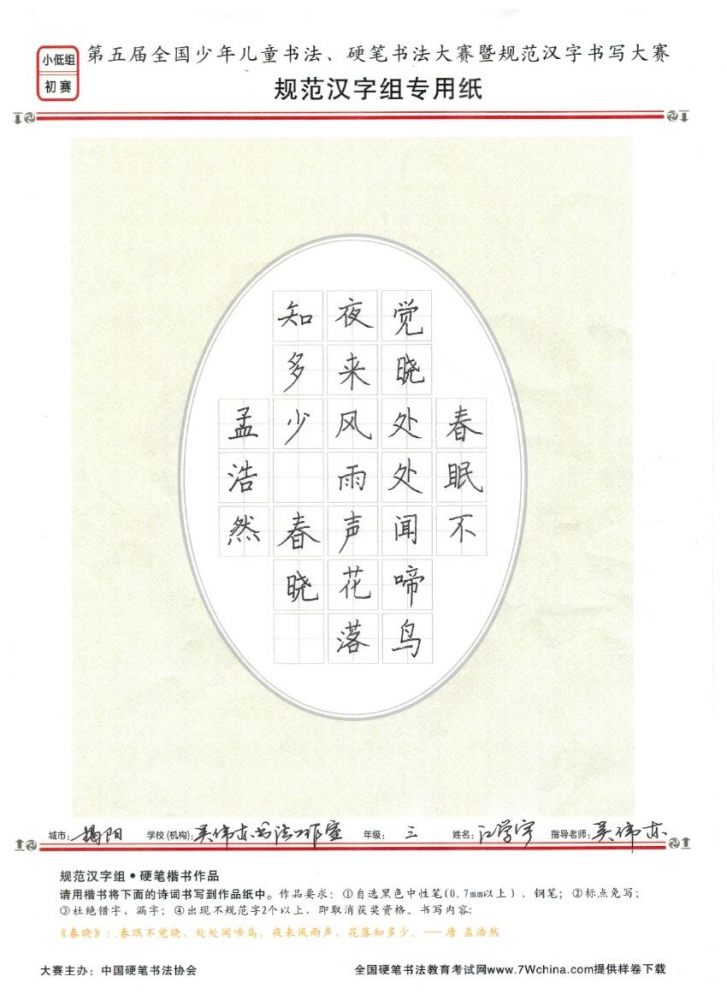 小低组
初赛
第五届全国少年儿童书法、硬笔书法大赛暨规范汉字书写大赛
规范汉字组专用纸
春眠不
觉晓处处闻啼鸟
夜来风雨声花落
知多少 春晓
孟浩然
城市：揭阳 学校(机构)：吴伟东书法工作室 年级：三 姓名：江学宇 指导老师：吴伟东
规范汉字组•硬笔楷书作品
请用楷书将下面的诗词书写到作品纸中。作品要求：①自选黑色中性笔(0.7mm以上)、钢笔；②标点免写；
③杜绝错字、漏字；④出现不规范字2个以上，即取消获奖资格。书写内容：
《春晓》：春眠不觉晓，处处闻啼鸟。夜来风雨声，花落知多少。——唐 孟浩然
大赛主办：中国硬笔书法协会 全国硬笔书法教育考试网www.7Wchina.com提供样卷下载